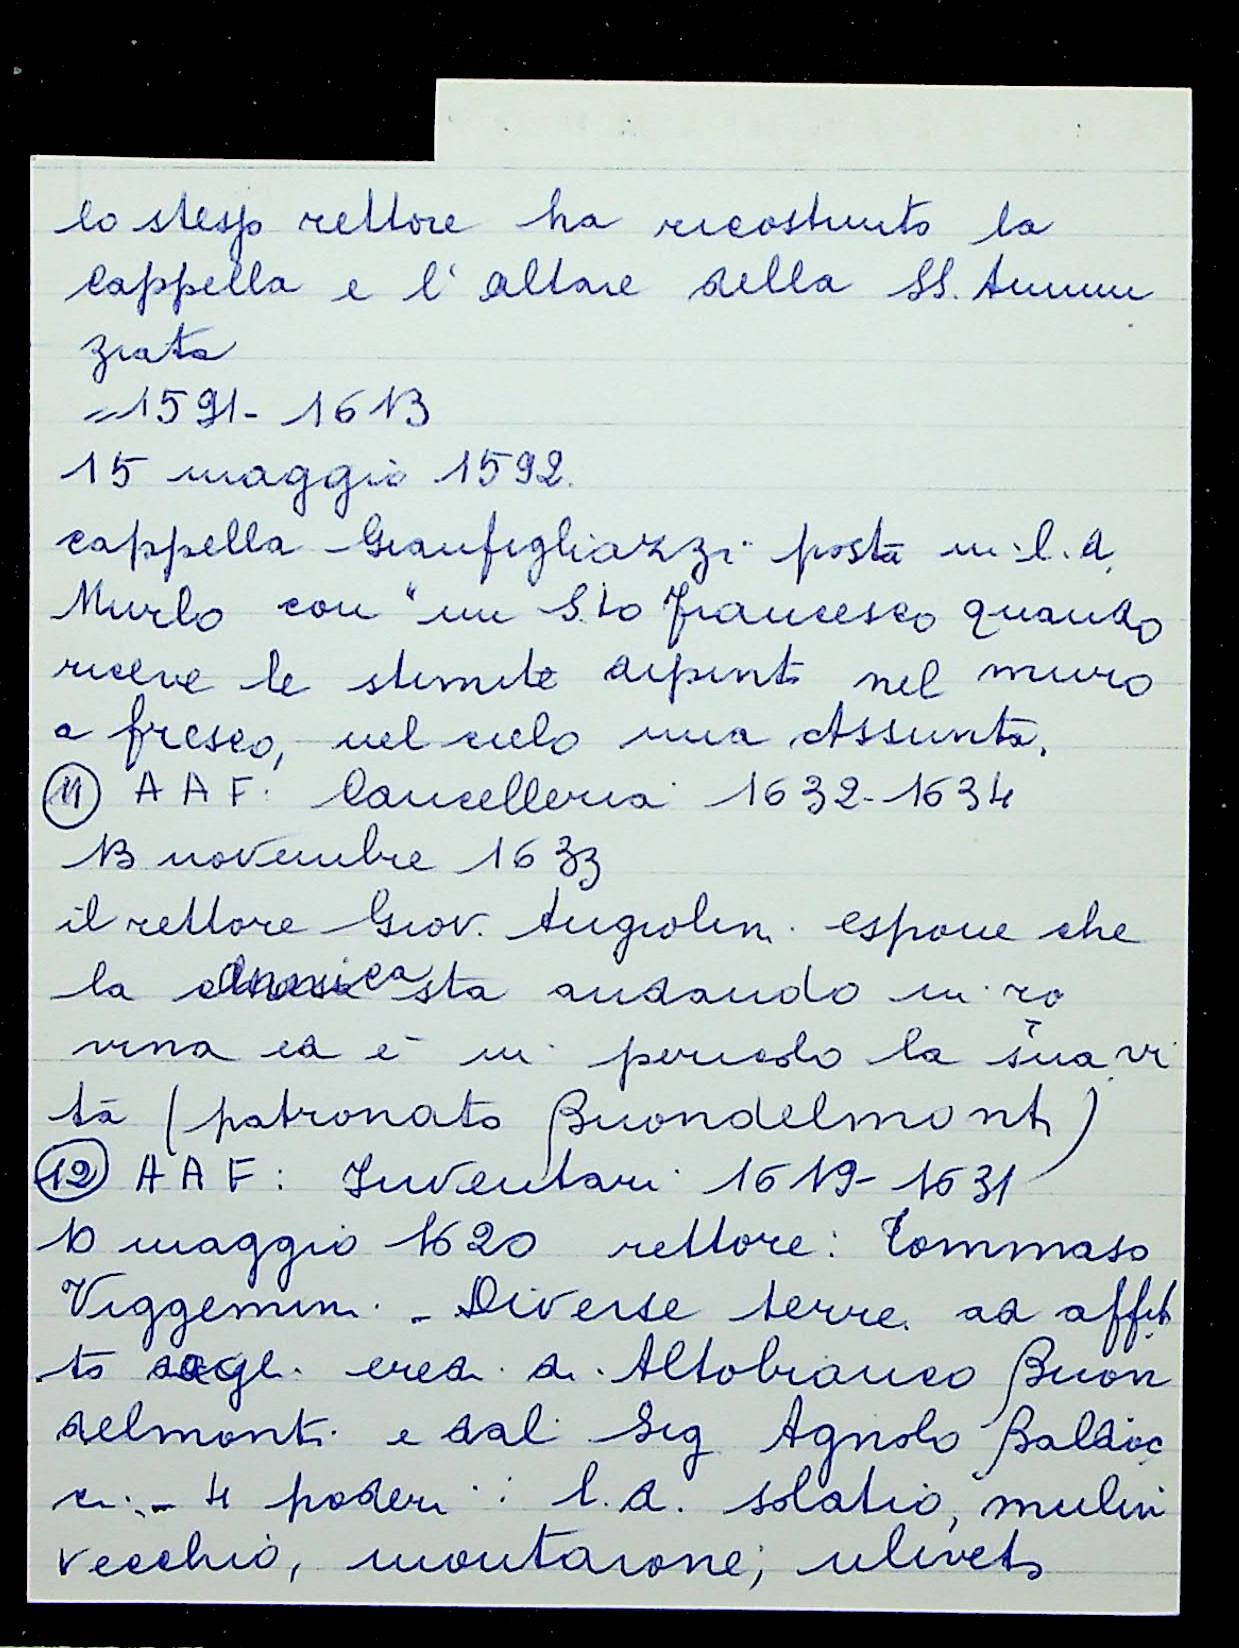 lo stesso rettore ha ricostruito la
cappella e l'altare della SS. Annun
ziata
=1591-1613
15 maggio 1592.
cappella Gianfigliazzi posta in l.d.
Murlo con "un S.to Francesco quando
riceve le stimite dipinto nel muro
a fresco, nel cielo una Assunta.
11 AAF: Cancelleria 1632-1634
13 novembre 1633
il rettore Giov. Angiolini espone che
la canonica sta andando in ro
vina ed è in pericolo la sua vi
ta (patronato Buondelmonti)
12 AAF: Inventari 1619-1631
10 maggio 1620 rettore: Tommaso
Viggemini - Diverse terre ad affit
to dagli eredi di Altobianco Buon
delmonti e dal Sig Agnolo Baldoc
ci - 4 poderi: l.d. solatio, mulin
vecchio, montaione, uliveto